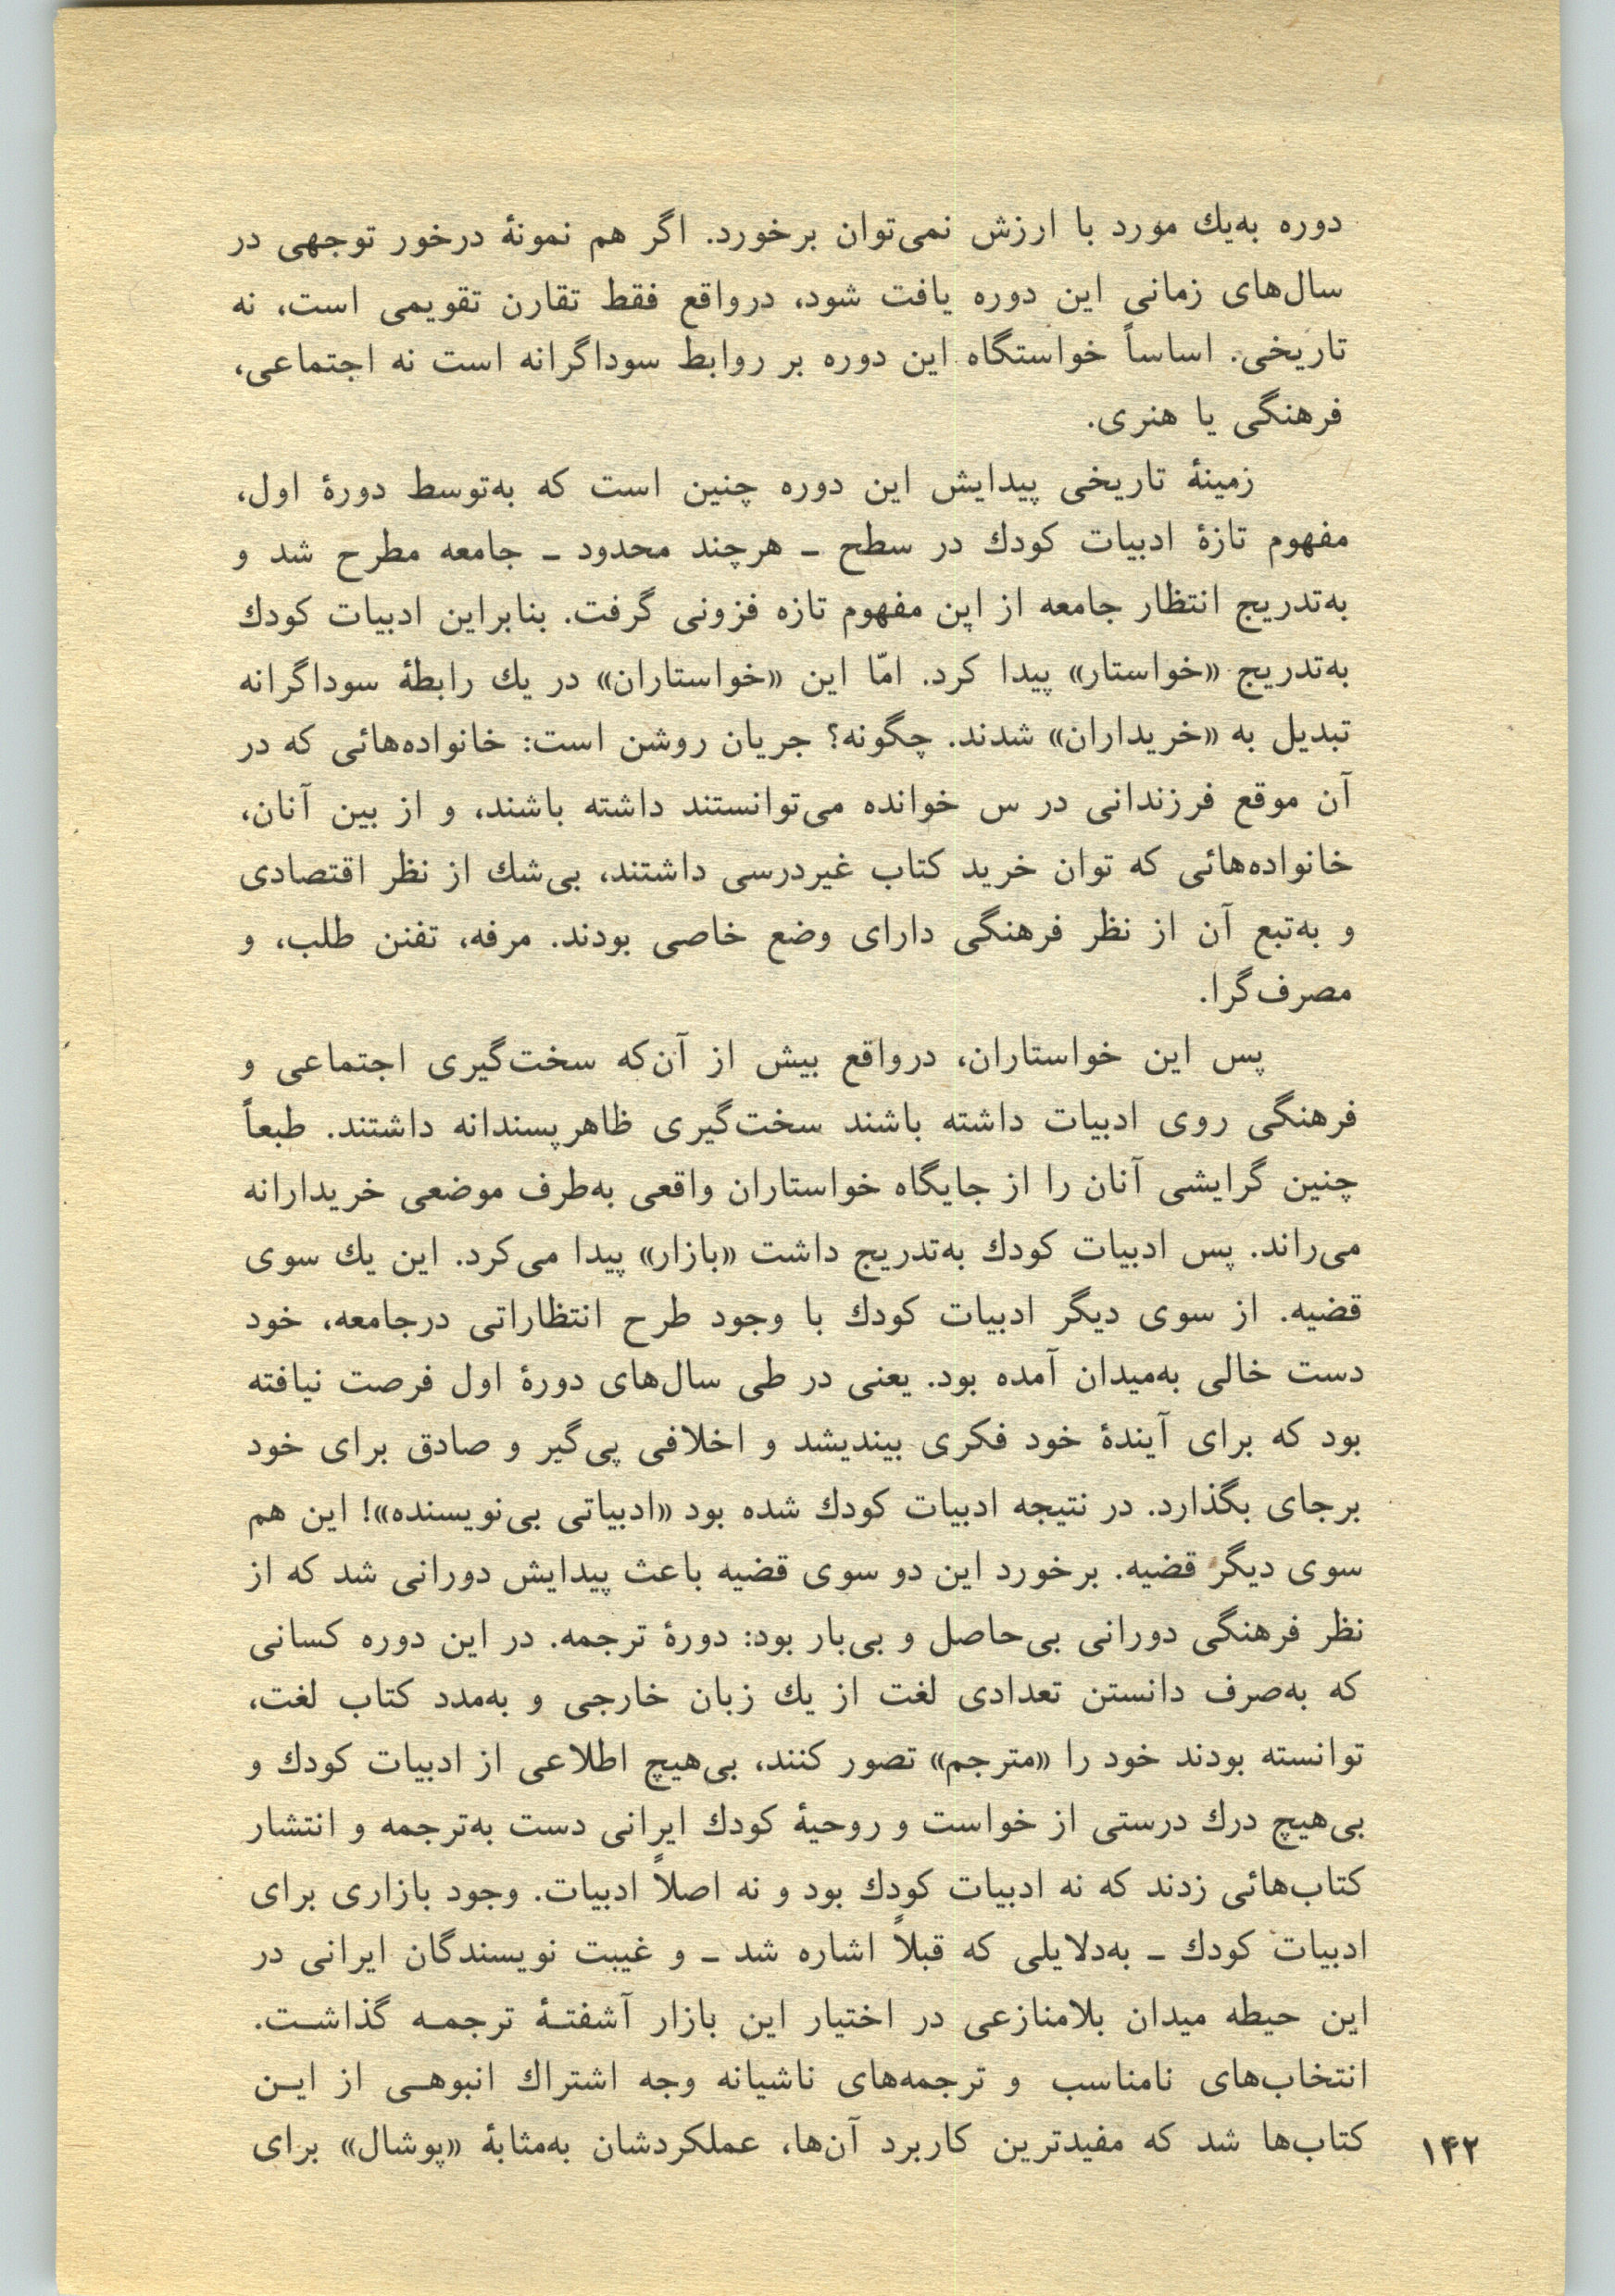 دوره به‌یك مورد با ارزش نمی‌توان برخورد. اگر هم نمونهٔ درخور توجهی در
سال‌های زمانی این دوره یافت شود، درواقع فقط تقارن تقویمی است، نه
تاریخی. اساساً خواستگاه این دوره بر روابط سوداگرانه است نه اجتماعی،
فرهنگی یا هنری.
زمینهٔ تاریخی پیدایش این دوره چنین است که به‌توسط دورهٔ اول،
مفهوم تازهٔ ادبیات کودك در سطح ـ هرچند محدود ـ جامعه مطرح شد و
به‌تدریج انتظار جامعه از این مفهوم تازه فزونی گرفت. بنابراین ادبیات کودك
به‌تدریج «خواستار» پیدا کرد. امّا این «خواستاران» در یك رابطهٔ سوداگرانه
تبدیل به «خریداران» شدند. چگونه؟ جریان روشن است: خانواده‌هائی که در
آن موقع فرزندانی در س خوانده می‌توانستند داشته باشند، و از بین آنان،
خانواده‌هائی که توان خرید کتاب غیردرسی داشتند، بی‌شك از نظر اقتصادی
و به‌تبع آن از نظر فرهنگی دارای وضع خاصی بودند. مرفه، تفنن طلب، و
مصرف‌گرا.
پس این خواستاران، درواقع بیش از آن‌که سخت‌گیری اجتماعی و
فرهنگی روی ادبیات داشته باشند سخت‌گیری ظاهرپسندانه داشتند. طبعاً
چنین گرایشی آنان را از جایگاه خواستاران واقعی به‌طرف موضعی خریدارانه
می‌راند. پس ادبیات کودك به‌تدریج داشت «بازار» پیدا می‌کرد. این یك سوی
قضیه. از سوی دیگر ادبیات کودك با وجود طرح انتظاراتی درجامعه، خود
دست خالی به‌میدان آمده بود. یعنی در طی سال‌های دورهٔ اول فرصت نیافته
بود که برای آیندهٔ خود فکری بیندیشد و اخلافی پی‌گیر و صادق برای خود
برجای بگذارد. در نتیجه ادبیات کودك شده بود «ادبیاتی بی‌نویسنده»! این هم
سوی دیگر قضیه. برخورد این دو سوی قضیه باعث پیدایش دورانی شد که از
نظر فرهنگی دورانی بی‌حاصل و بی‌بار بود: دورهٔ ترجمه. در این دوره کسانی
که به‌صرف دانستن تعدادی لغت از یك زبان خارجی و به‌مدد کتاب لغت،
توانسته بودند خود را «مترجم» تصور کنند، بی‌هیچ اطلاعی از ادبیات کودك و
بی‌هیچ درك درستی از خواست و روحیهٔ کودك ایرانی دست به‌ترجمه و انتشار
کتاب‌هائی زدند که نه ادبیات کودك بود و نه اصلاً ادبیات. وجود بازاری برای
ادبیات کودك ـ به‌دلایلی که قبلاً اشاره شد ـ و غیبت نویسندگان ایرانی در
این حیطه میدان بلامنازعی در اختیار این بازار آشفتـهٔ ترجمـه گذاشـت.
انتخاب‌های نامناسب و ترجمه‌های ناشیانه وجه اشتراك انبوهـی از ایـن
کتاب‌ها شد که مفیدترین کاربرد آن‌ها، عملکردشان به‌مثابهٔ «پوشال» برای
۱۴۲